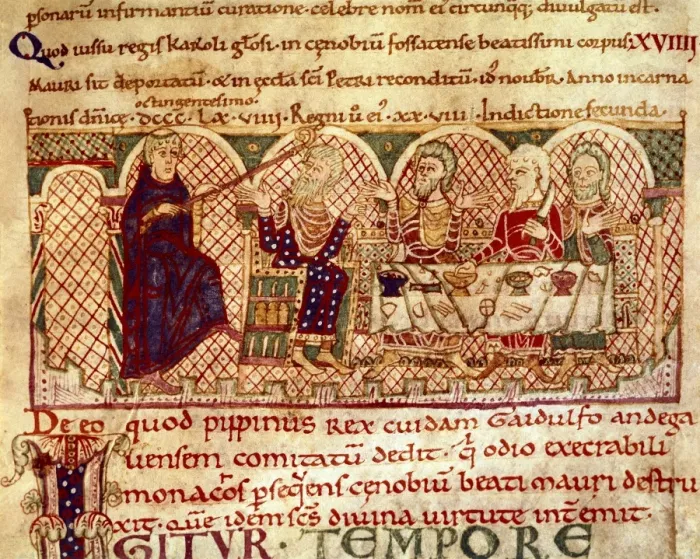 psonarū infirmantiū curatione · celebre nom̄ ei᾽ circunq̄q; diuulgatū est.
Quod iussu regis karoli gl̄osi · in cenobiū fossatense beatissimi corpus XVIIII
Mauri sit deportatū · & in eccl̄a sc̄i Petri reconditū · id᾽ noub᾽r. Anno incarna
octingentesimo.
tionis dn̄ice · DCCC · LX · VIIII · Regni ū ei᾽ · XX · VIII · Indictione secunda ·
De eo quod pippinus rex cuidam Gaidulfo andega
uensem comitatū dedit · q̄ odio execrabili
monachos ꝑseq̄ens cenobiū beati mauri destru
xit · que idem sc̄s diuina uirtute intemit ·
IGITUR · TEMPORE